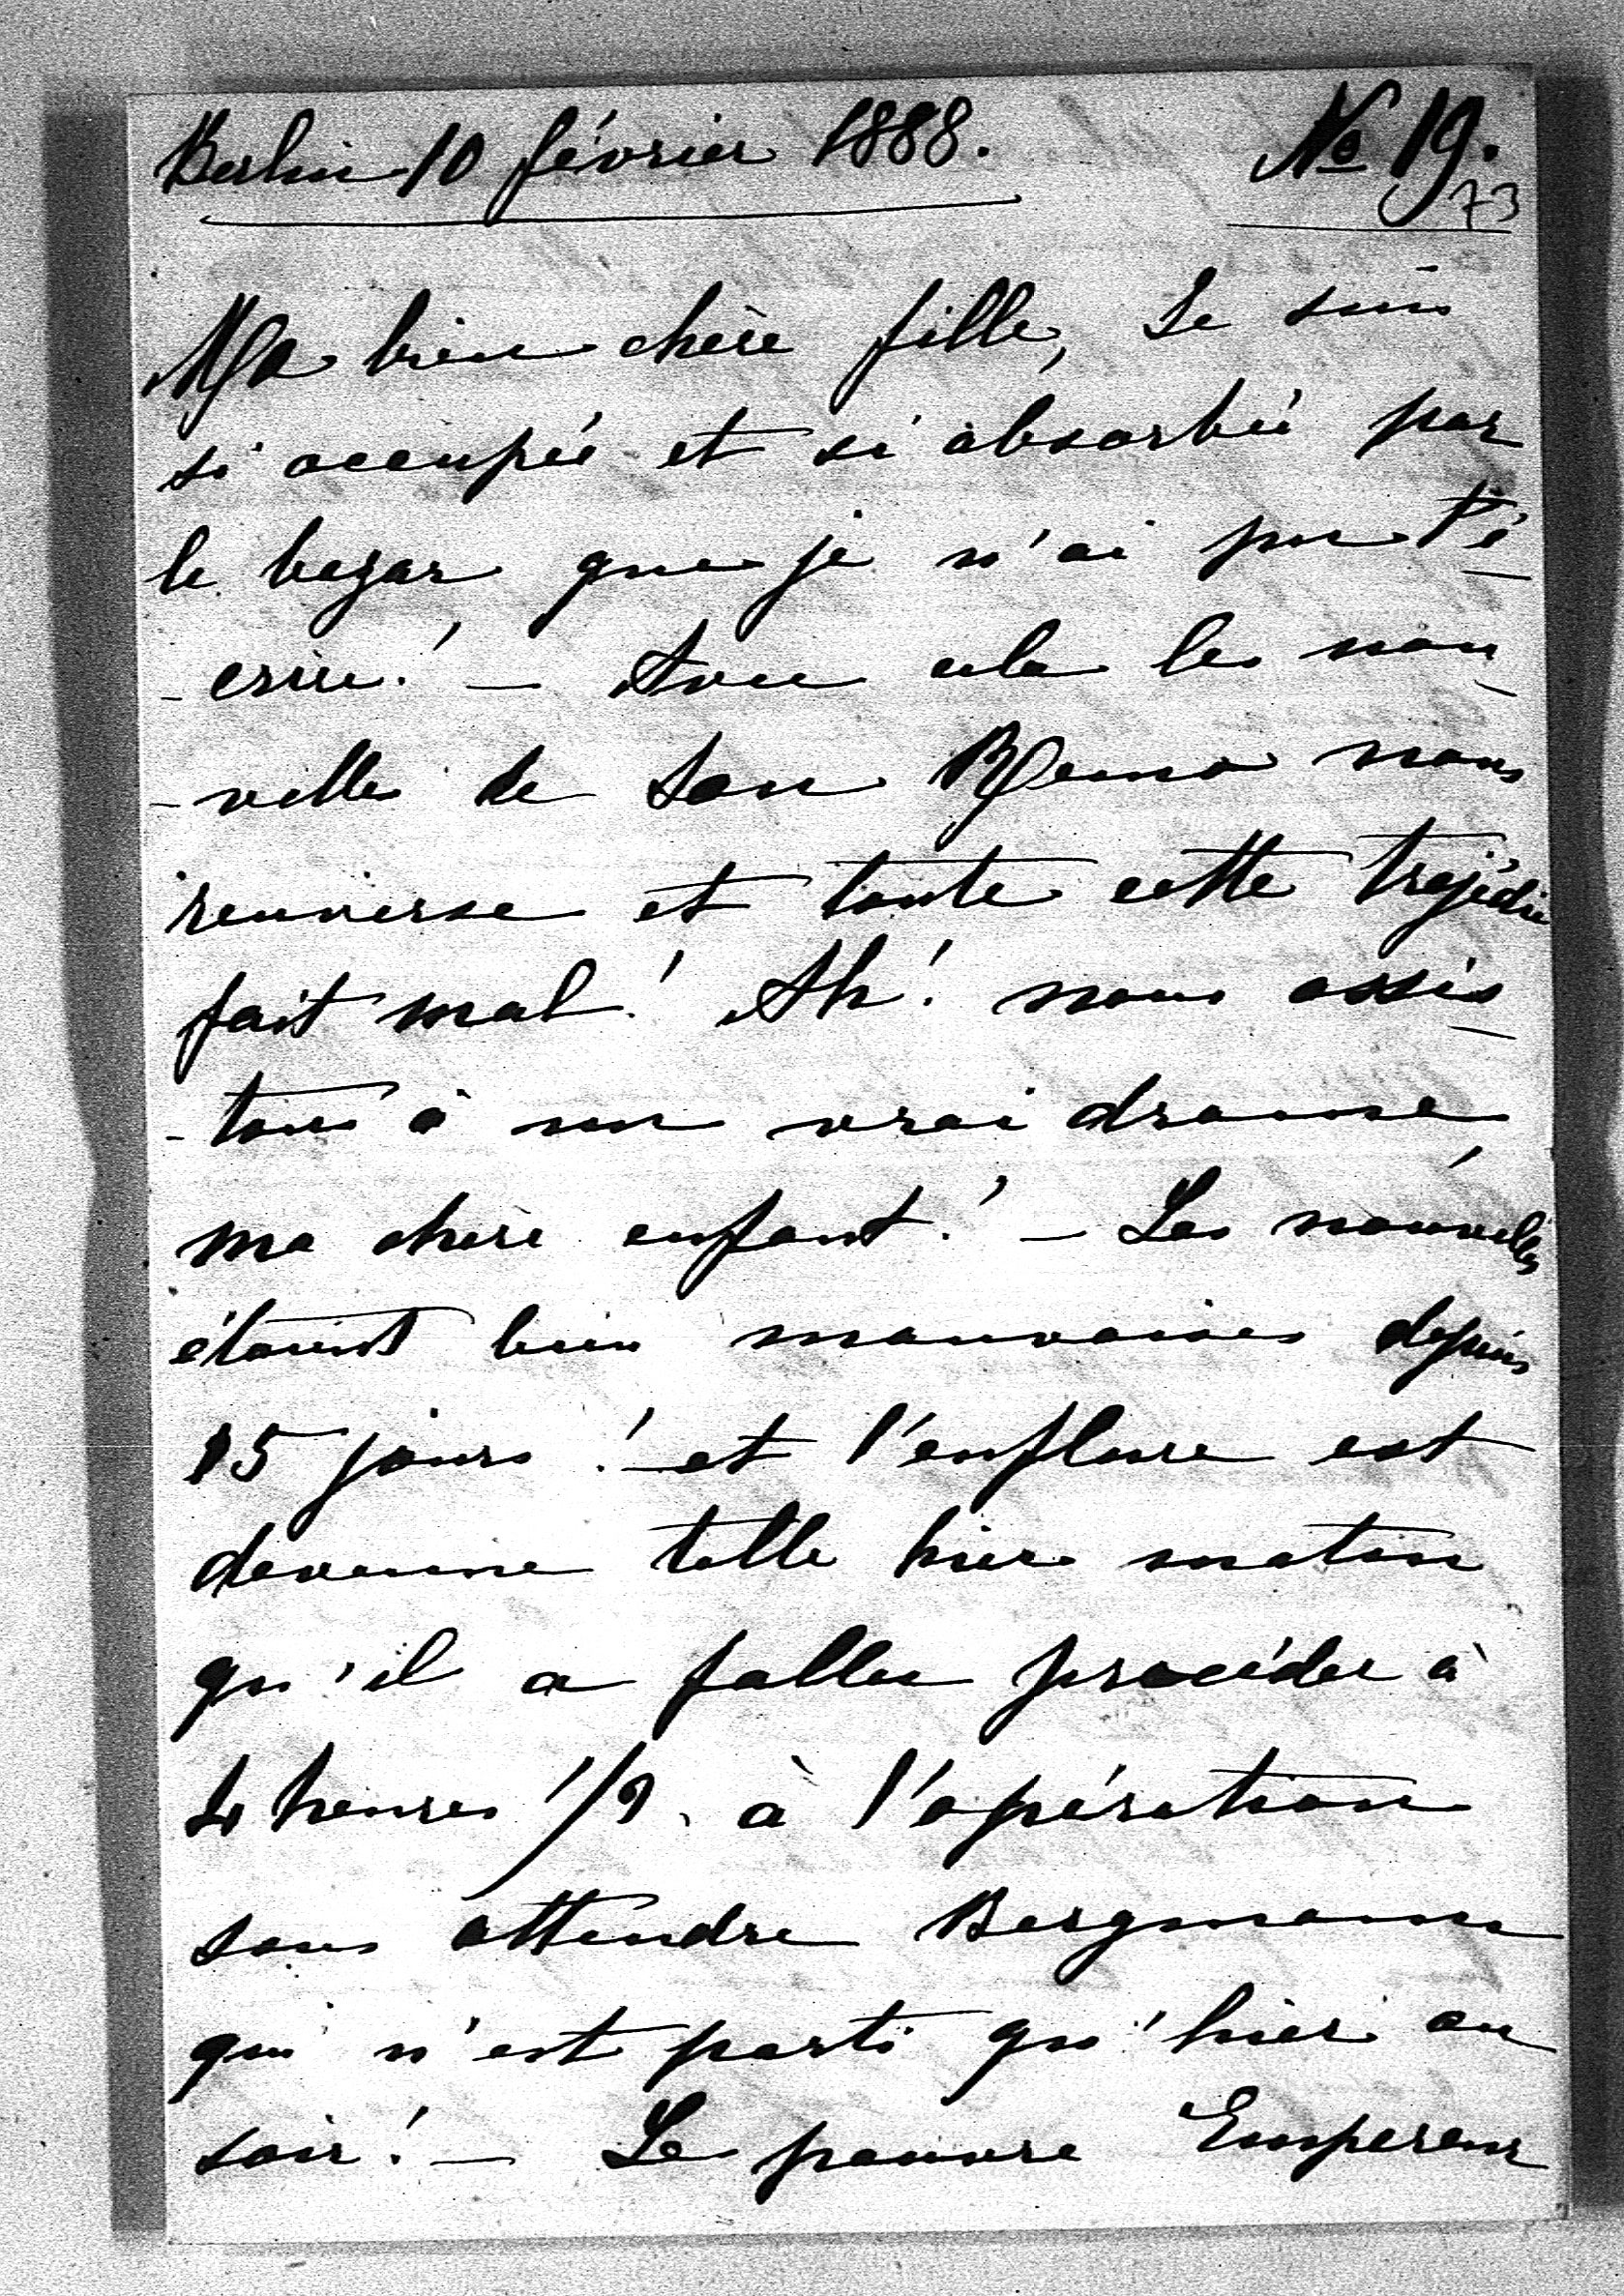 Berlin 10 février 1888. No 19.
73
Ma bien chère fille, Je suis
si occupée et si absorbée par
le bazar que je n'ai pu t'é
- crire! — Avec cela les nou
- velles de San Remo nous
renverse et toute cette trajédie
fait mal! Ah! nous assis
- tons à un vrai dramme
ma chère enfant! — Les nouvelles
étaient bien mauvaises depuis
15 jours! et l'enflure est
devenue telle hier matin
qu'il a fallu procéder à
4 heures 1/2 à l'opération
sans attendre Bergmann
qui n'est parti qu'hier au
soir! — Le pauvre Empereur